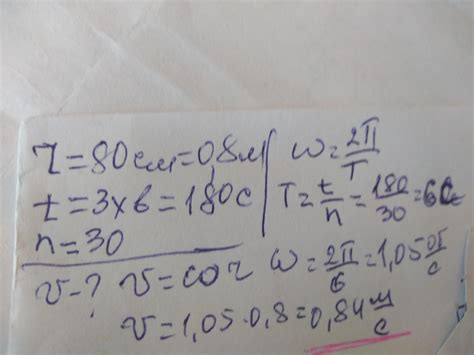 r=80см=0,8м
t=3хв=180с
n=30
v-?
ω=2П/T
T=t/n=180/30=6с
v=ωr
ω=2П/6=1,05
v=1,05·0,8=0,84 м/с